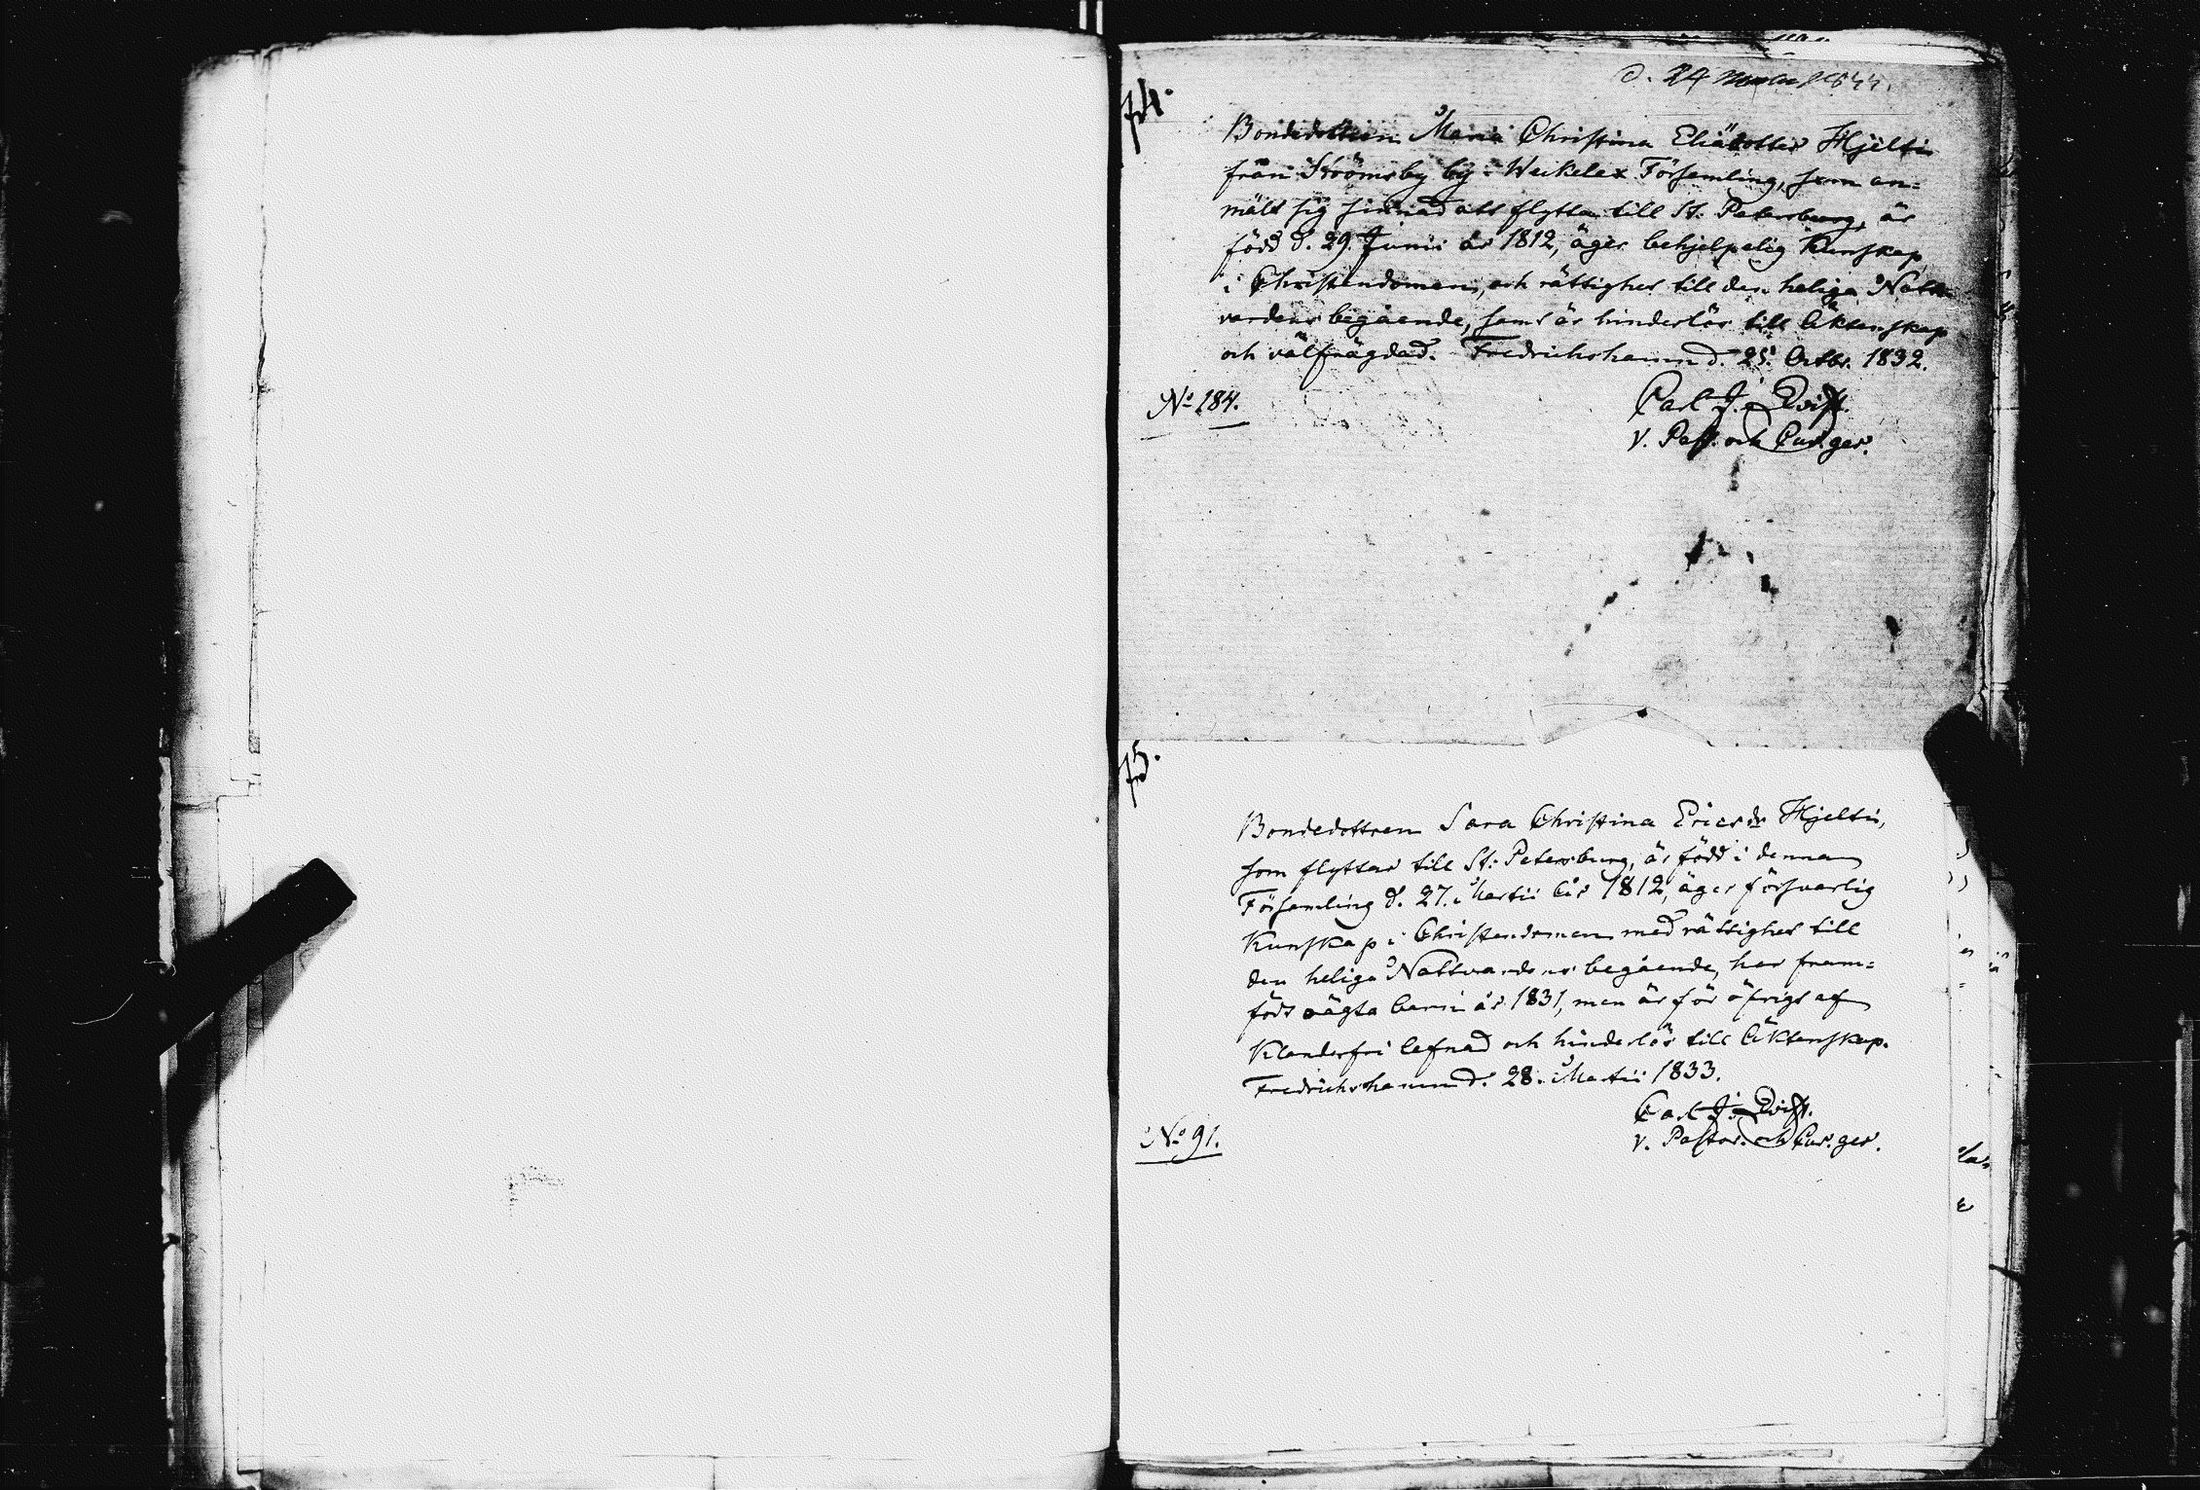 d. 24
74.
Bondedottren Maria Christina Eliædotter Hjelti
från Strömsby by i Weckelax Församling, som an=
mält sig sinnad att flytta till St. Petersburg, är
född d. 29. Junii år 1812, äger behjelpelig kunskap
i Christendomen, och rättighet till den heliga Natt-
vardens begående, samt är hinderlös till äktenskap
och välfrägdad. Fredrichshamn d. 25. Octbr. 1832.
No 184.
Carl J. Qvist.
V. Past. och Cur. ger.
75.
Bondedottren Sara Christina Ericsdr Hjelti,
som flyttar till St. Petersburg, är född i denna
Församling d. 27. Martii år 1812, äger försvarlig
Kunskap i Christendomen med rättighet till
den heliga Nattvardens begående, har fram=
födt oägta barn år 1831, men är för öfrigt af
Klanderfri lefnad och hinderlös till äktenskap.
Fredrichshamn d. 28. Martii 1833.
Carl J. Qvist.
No 91.
V. Pastor. och Cur. ger.